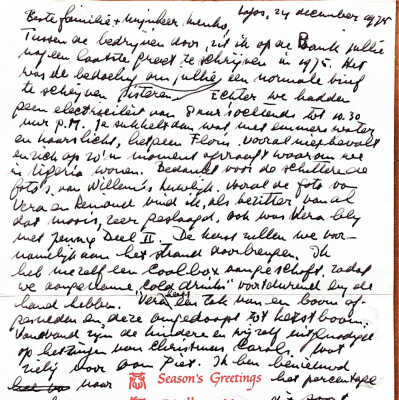 Lagos, 24 december 1975
Beste familie + mijnheer Menko,
Tussen de bedrijven door, zit ik op de Bank jullie
nog een laatste groet te schrijven in 1975. Het
was de bedoeling om jullie een normale brief
te schrijven gisteren. Echter we hadden
geen electriciteit van 8 uur 's ochtends tot 10.30
uur p.m. Je sukkelt dan wat met emmers water
en kaarslicht, hetgeen Floris vooral niet bevalt
en zich op zo'n moment afvraagt waarom we
in Nigeria wonen. Bedankt voor de schitterende
foto's van Willem's huwelijk. Vooral de foto van
Vera en Renaud vind ik, als bezitter van al
dat moois, zeer geslaagd, ook was Vera blij
met Jenny Deel II. De kerst zullen we voor-
namelijk aan het strand doorbrengen. Ik
heb mezelf een Cool box aangeschaft, zodat
we aangename "cold drinks" voortdurend bij de
hand hebben. Vera heeft een tak van een boom af-
gesneden en deze opgedoft tot kerstboom.
Vanavond zijn de kinderen en wij zelf uitgenodigd
op het zingen van Christmas Carols, wat
Piet. Ik ben benieuwd
naar het percentage
Season's Greetings